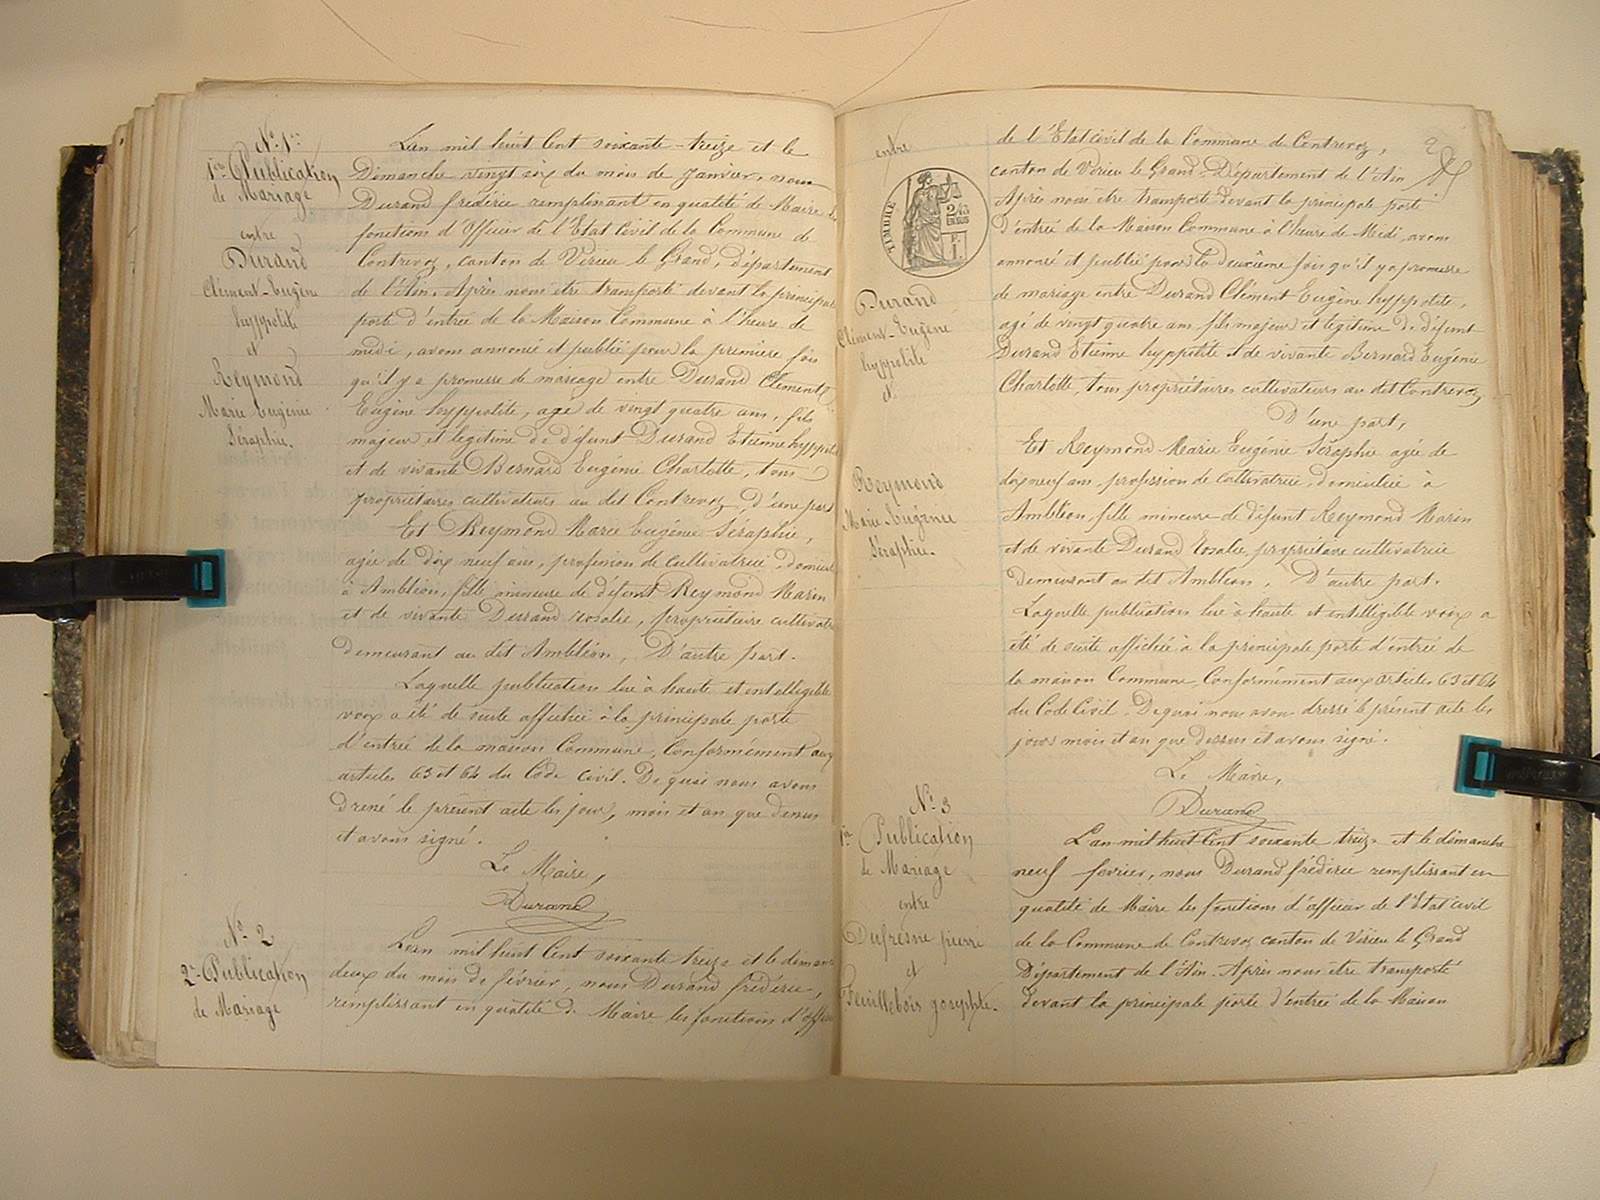 N° 1er
1ère Publication
de Mariage
entre
Durand
Clément-Eugène
hyppolite
et
Reymond
Marie Eugénie
Séraphie.
L'an mil huit cent soixante-treize et le
Dimanche vingt six du mois de Janvier, nous
Durand frédéric remplissant en qualité de Maire les
fonctions d'Officier de l'Etat Civil de la Commune de
Contrevoz, canton de Virieu le Grand, département
de l'Ain. Après nous être transporté devant la principale
porte d'entrée de la Maison Commune à l'heure de
midi, avons annoncé et publié pour la première fois
qu'il y a promesse de mariage entre Durand Clément
Eugène hyppolite, age de vingt quatre ans, fils
majeur et légitime de défunt Durand Etienne hyppolite
et de vivante Bernard Eugénie Charlotte, tous
propriétaires cultivateurs au dit Contrevoz, d'une part
Et Reymond Marie Eugénie Séraphie,
agée de dix neuf ans, profession de cultivatrice, domiciliée
à Ambléon, fille mineure de défunt Reymond Marin
et de vivante Durand rosalie, propriétaire cultivatrice
demeurant au dit Ambléon, D'autre part.
Laquelle publication lue à haute et intelligible
voix a été de suite affichée à la principale porte
d'entrée de la maison Commune, Conformément aux
articles 63 et 64 du Code civil. De quoi nous avons
dressé le présent acte les jour, mois et an que dessus
et avons signé.
Le Maire,
Durand
N° 2
2me Publication
de Mariage
L'an mil huit cent soixante treize et le dimanche
deux du mois de février, nous Durand frédéric,
remplissant en qualité de Maire les fonctions d'officier
2
entre
TIMBRE
2/10
EN SUS
Durand
Clément-Eugène
hyppolite
et
Reymond
Marie Eugénie
Séraphie.
de l'Etat civil de la Commune de Contrevoz,
canton de Virieu le Grand Département de l'Ain
Après nous être transporté devant la principale porte
d'entrée de la Maison Commune à l'heure de Midi, avons
annoncé et publié pour la deuxième fois qu'il y a promesse
de mariage entre Durand Clément Eugène hyppolite,
agé de vingt quatre ans fils majeur et légitime de défunt
Durand Etienne hyppolite et de vivante Bernard Eugénie
Charlotte, tous propriétaires cultivateurs au dit Contrevoz,
D'une part,
Et Reymond Marie Eugénie Séraphie agée de
dix neuf ans profession de cultivatrice, domiciliée à
Ambléon, fille mineure de défunt Reymond Marin
et de vivante Durand Rosalie, propriétaire cultivatrice
demeurant au dit Ambléon, D'autre part.
Laquelle publication lue à haute et intelligible voix a
été de suite affichée à la principale porte d'entrée de
la maison Commune, Conformément aux articles 63 et 64
du Code Civil. De quoi nous avons dressé le présent acte les
jour mois et an que dessus et avons signé.
Le Maire,
Durand
N° 3
1ère Publication
de Mariage
entre
Dufresne pierre
et
Feuillebois josephte.
L'an mil huit cent soixante treize et le dimanche
neuf fevrier, nous Durand frédéric remplissant en
qualité de Maire les fonctions d'officier de l'Etat civil
de la Commune de Contrevoz canton de Virieu le Grand
Département de l'Ain. Après nous être transporté
devant la principale porte d'entrée de la Maison